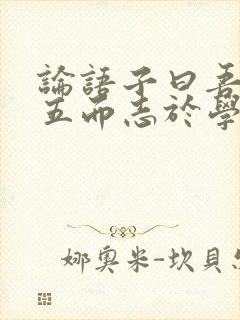 論語子曰吾
五而志於學
娜奧米-坎貝